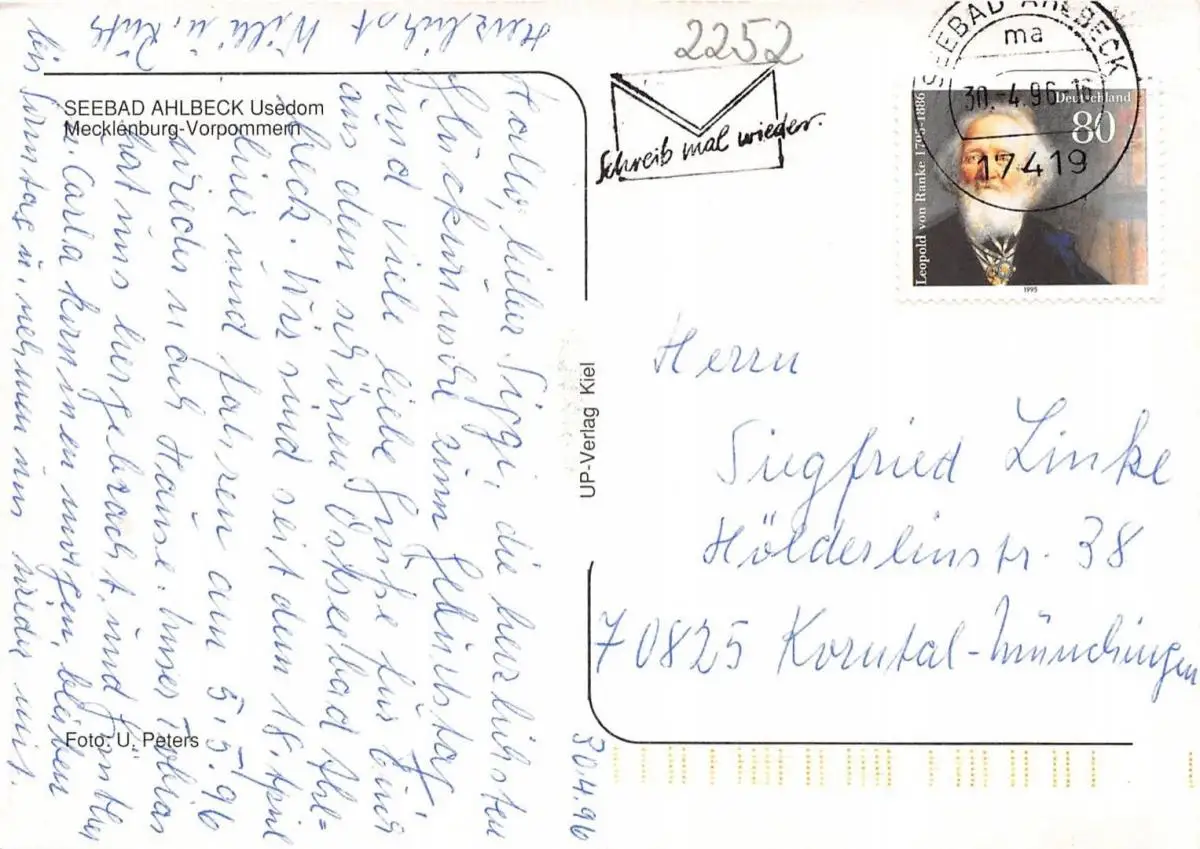 2252
SEEBAD AHLBECK
ma
30.-4.96-16
17419
Schreib mal wieder.
Deutschland
80
Leopold von Ranke 1795-1886
1995
SEEBAD AHLBECK Usedom
Mecklenburg-Vorpommern
Foto: U. Peters
UP-Verlag Kiel
30.4.96
Hallo, lieber Siggi, die herzlichsten
Glückwünsche zum Geburtstag,
und viele liebe Grüße für Euch
aus dem schönen Ostseebad Ahl=
beck. Wir sind seit dem 18. April
hier und fahren am 5.5.96
wieder nach Hause. Unser Tobias
hat uns hergebracht, und Günther
u. Carla kommen morgen, bleiben
bis Sonntag u. nehmen uns wieder mit.
Herzlichst Willi u. Ruth
Herrn
Siegfried Linke
Hölderlinstr. 38
70825 Korntal-Münchingen